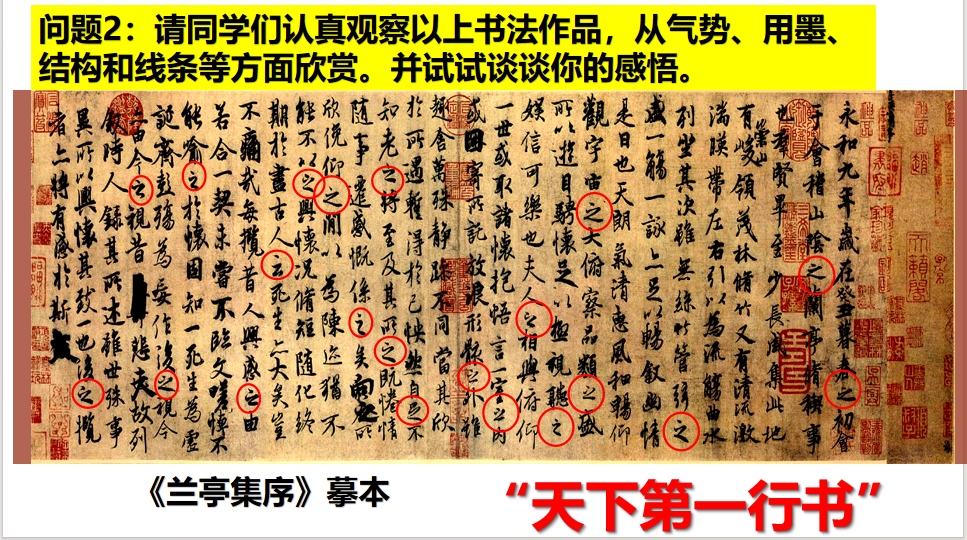 问题2：请同学们认真观察以上书法作品，从气势、用墨、
结构和线条等方面欣赏。并试试谈谈你的感悟。
永和九年歲在癸丑暮春之初會
于會稽山陰之蘭亭脩稧事
也群賢畢至少長咸集此地
有崇山峻領茂林脩竹又有清流激
湍暎帶左右引以為流觴曲水
列坐其次雖無絲竹管弦之
盛一觴一詠亦足以暢敘幽情
是日也天朗氣清惠風和暢仰
觀宇宙之大俯察品類之盛
所以遊目騁懷足以極視聽之
娛信可樂也夫人之相與俯仰
一世或取諸懷抱悟言一室之內
或因寄所託放浪形骸之外雖
趣舍萬殊靜躁不同當其欣
於所遇蹔得於己怏然自足不
知老之將至及其所之既惓情
隨事遷感慨係之矣向之所
欣俛仰之間以為陳迹猶不
能不以之興懷況脩短隨化終
期於盡古人云死生亦大矣豈
不痛哉每攬昔人興感之由
若合一契未嘗不臨文嗟悼不
能喻之於懷固知一死生為虛
誕齊彭殤為妄作後之視今
亦由今之視昔悲夫故列
敘時人錄其所述雖世殊事
異所以興懷其致一也後之攬
者亦將有感於斯文
《兰亭集序》摹本
“天下第一行书”